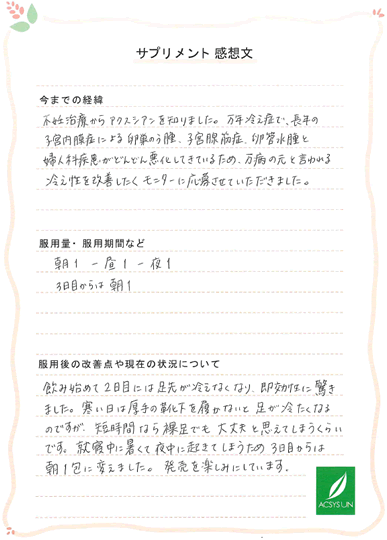 サプリメント 感想文
今までの経緯
不妊治療からアクスシアンを知りました。万年冷え症で、長年の
子宮内膜症による卵巣のう腫、子宮腺筋症、卵管水腫と
婦人科疾患がどんどん悪化してきているため、万病の元と言われる
冷え性を改善したくモニターに応募させていただきました。
服用量・服用期間など
朝1 - 昼1 - 夜1
3日目からは 朝1
服用後の改善点や現在の状況について
飲み始めて2日目には足先が冷えなくなり、即効性に驚き
ました。寒い日は厚手の靴下を履かないと足が冷たくなる
のですが、短時間なら裸足でも大丈夫と思えてしまうくらい
です。就寝中に暑くて夜中に起きてしまうため3日目からは
朝1包に変えました。発売を楽しみにしています。
ACSYSUN